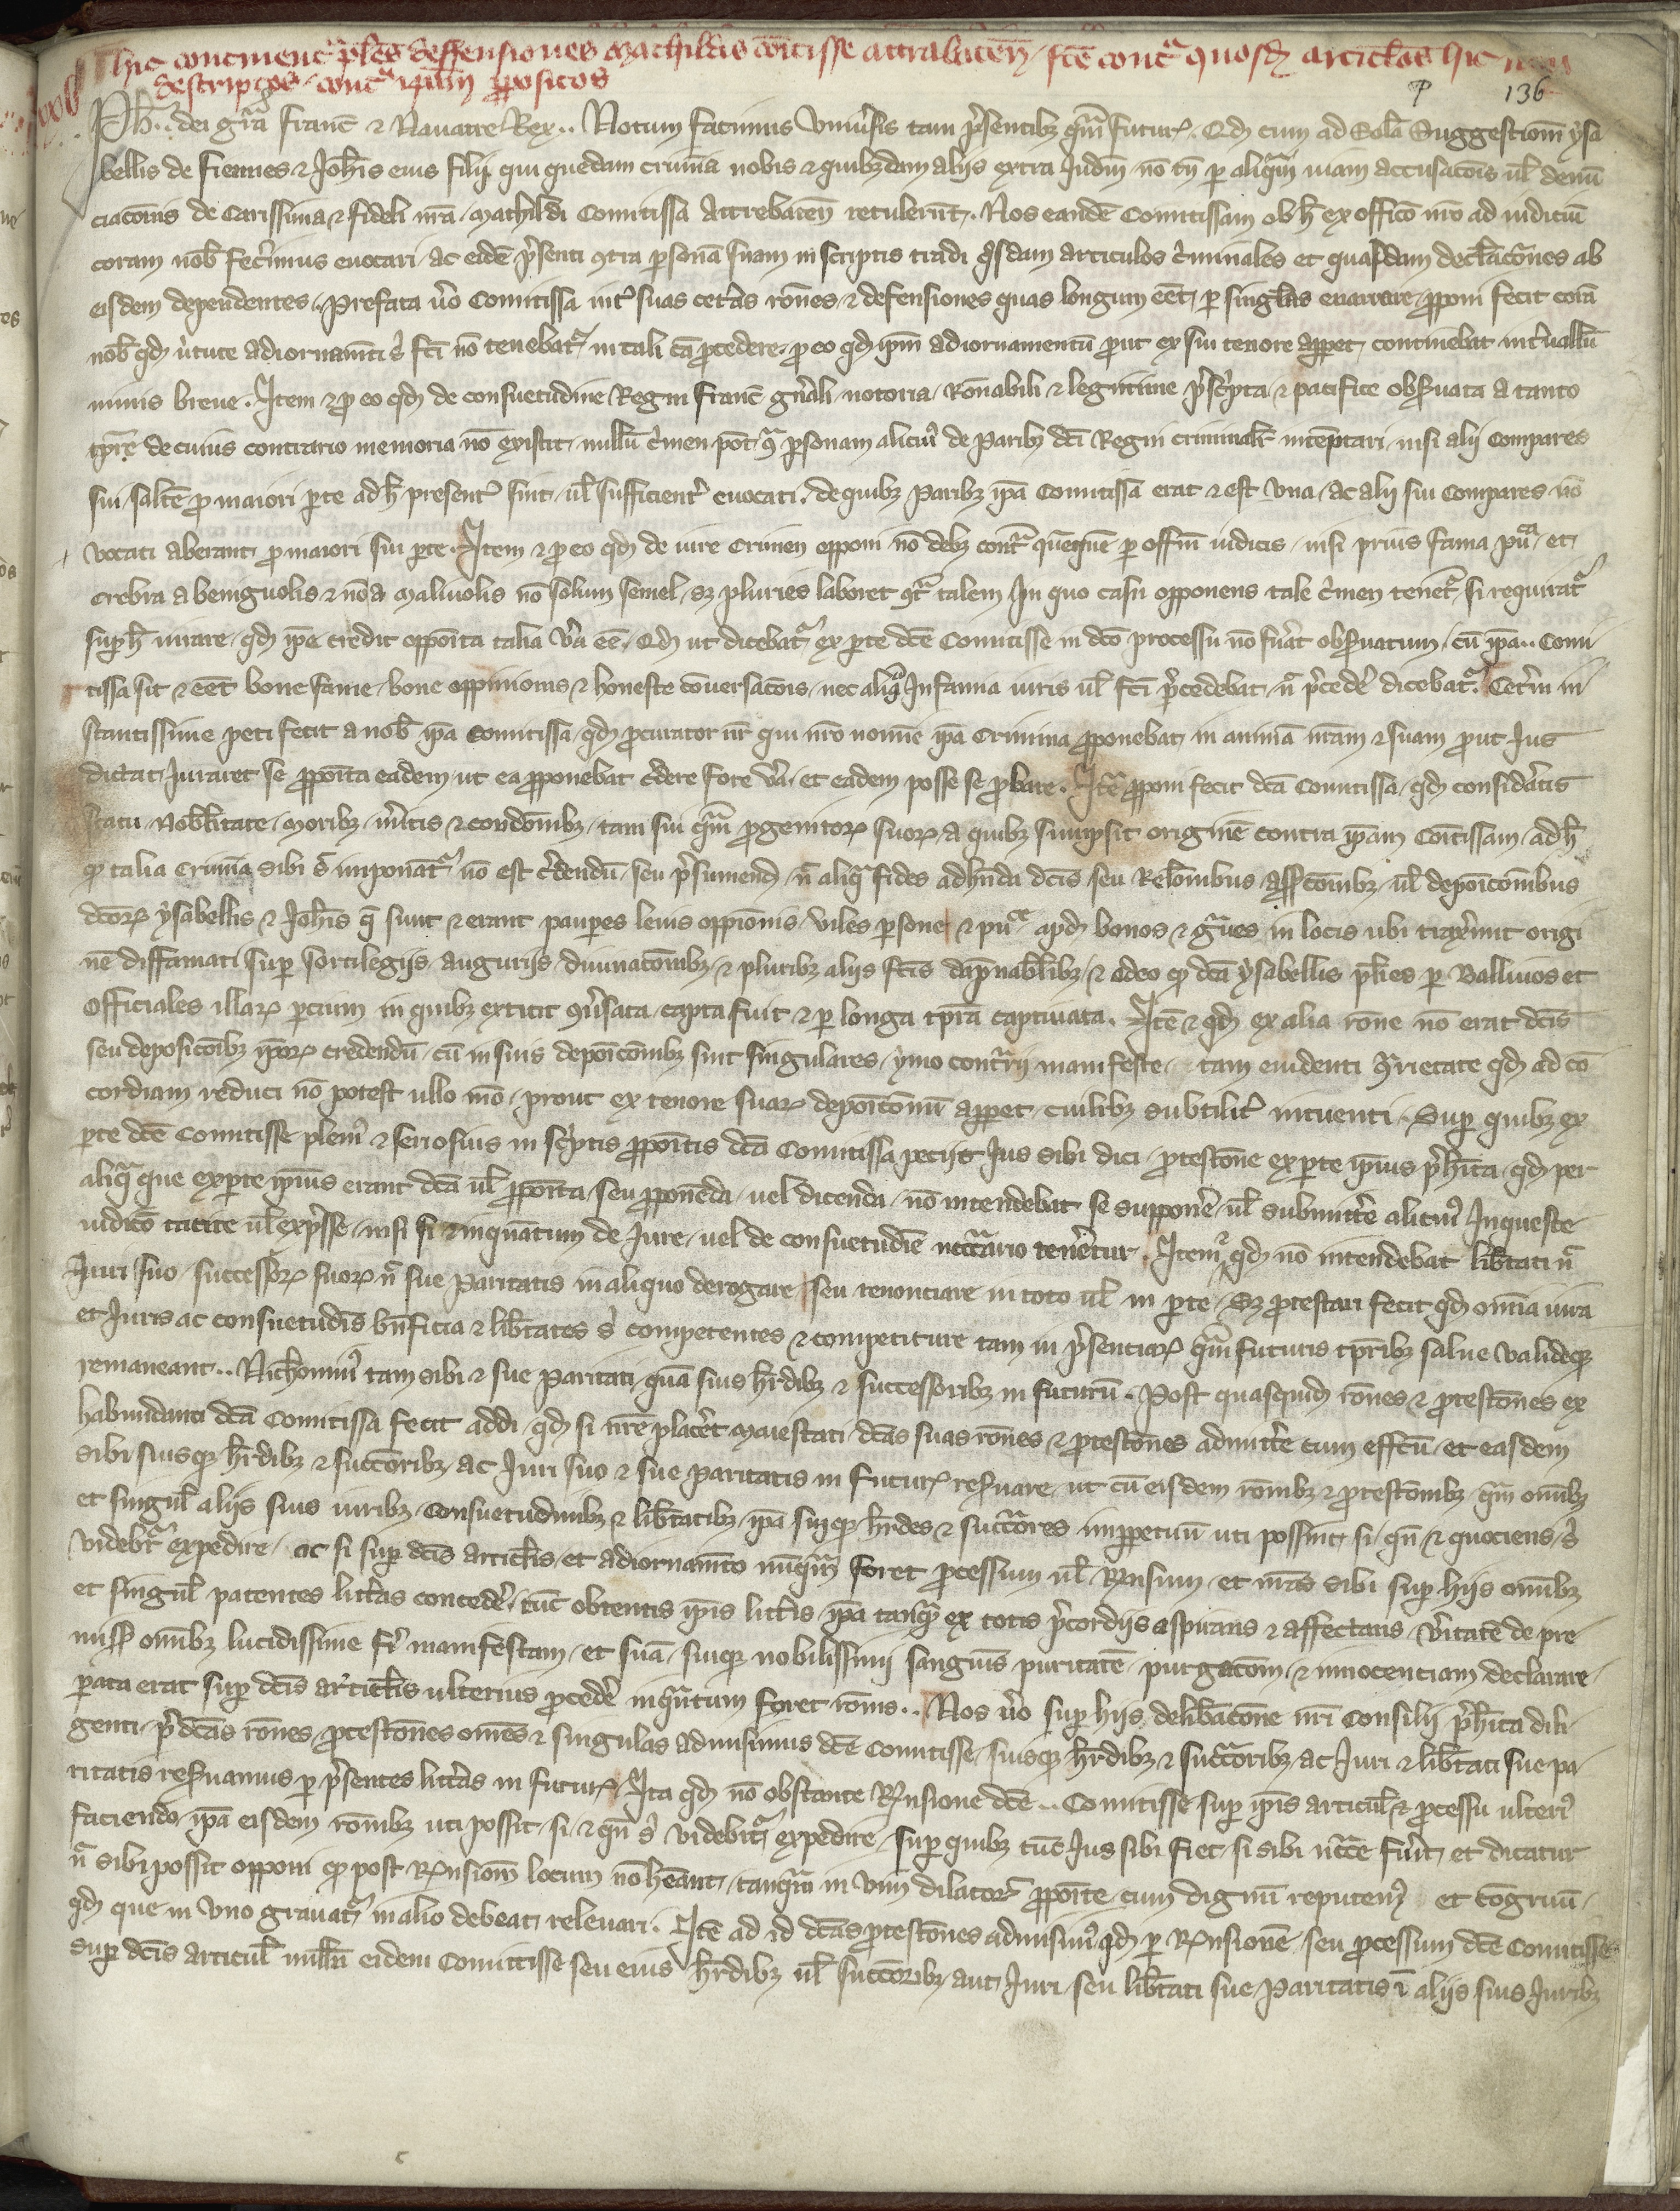 hic continent᷑ pl̃es deffensiones Mathildis cõitisse attrabateñ fcẽ contª quosdã articl̃os hic
descriptos contª ip̃am p̃positos
136
Ph̃.. dei grã Franc̃ ⁊ Nauarre Rex.. Notum facimus Vniũsis tam p̃sentibꝫ qªm futuꝝ. Qđ cum ad Solã Suggestioñ ẏsa
bellis de Fiennes ⁊ Joh̃is eius filij qui quedam crimiña nobis ⁊ quibꝫdam alijs extra Judiñ nõ tñ p aliqªm uiam accusac̃ois ul̃ denũ
ciac̃onis de Carissima ⁊ fideli nr̃a Mathildi Comitissa Attrebateñ retulerũt. Nos eandẽ Comitissam ob h̃ ex offic̃o nr̃o ad iudiciũ
coram nob̃ fec̃imus euocari ac eidẽ p̃senti ꝯtra p̃sonã suam in scriptis tradi q̃sdam articulos c̃minales et quasdam decl̃ac̃ones ab
eisdem dependentes.. Prefata ũo Comitissa int̃ suas cet̃as rõnes ⁊ defensiones quas longum eẽt p singl̃as enarrare p̃poni fecit corã
nob̃ qđ ũtute adiornam̃ti s̃ fc̃i nõ tenebat᷑ in tali cã p̃cedere p eo qđ ip̃m adiornamentũ put ex sui tenore appet continebat int̃uallũ
nimis breue. Item ⁊ p eo qđ de consuetudine Regni Franc̃ gñali notoria rõnabili ⁊ legitime p̃sc̃pta ⁊ pacifice obs̃uata a tanto
tp̃re de cuius contrario memoria nõ existit nullũ c̃men põt ꝯª p̃sonam alicui᷒ de Paribꝫ dc̃i Regni criminalr̃ inteptari nisi alij Compares
sui saltẽ p maiori pte ad h̃ present̃ sint ul̃ sufficient̃ euocati. de quibꝫ Paribꝫ ip̃a Comitissa erat ⁊ est Vna ac alij sui Compares nõ
vocati aberant p maiori sui pte. Item ⁊ p eo qđ de iure Crimen opponi nõ debꝫ contª queqũe p offm̃ iudicis nisi prius fama pũª et
crebra a beniguolis ⁊ nõ a maliuolis nõ solum semel sꝫ pluries laboret ꝯtª talem In quo casu opponens tale c̃men tenet᷑ si requirat᷑
sup h̃ iurare qđ ip̃e credit oppõita talia ũa eẽ. Qđ ut dicebat᷑ ex pte dc̃e Comitisse in dc̃o processu nõ fũat obs̃uatum cũ ip̃a.. Comi
tissa sit ⁊ eẽt bone fame bone oppinionis ⁊ honeste cõuersac̃ois nec aliqª Infamia iuris ul̃ fc̃i p̃cedebat ñ p̃cedẽ dicebat᷑. Cet̃m in
stantissime peti fecit a nob̃ ip̃a Comitissa qđ p̃curator nr̃ qui nr̃o nomie ip̃a Crimina p̃ponebat in animã nr̃am ⁊ suam put Jus
dictat Juraret se p̃põita eadem ut ea p̃ponebat c̃dere fore ũa et eadem posse se p̃bare. Itẽ p̃poni fecit dc̃a Comitissa qđ considatis
statu Nobl̃itate Moribꝫ m̃itis ⁊ condõibꝫ tam sui qªm p̃genitoꝝ suoꝝ a quibꝫ sumpsit originẽ contra ip̃am Com̃tissam ad h̃
qđ talia Crimiña sibi s̃ imponãt᷑ nõ est c̃dendũ seu p̃sumenđ ñ aliqª fides adh̃nda dc̃is seu Relõibꝫ ass̃c̃oibꝫ ul̃ depõic̃oibus
dc̃oꝝ ẏsabellis ⁊ Joh̃is q̃ sunt ⁊ erant paupes leuis oppiõnis viles psone ⁊ pũª apđ bonos ⁊ gªues in locis ubi trax̃unt origi
nẽ diffamati sup sortilegijs augurijs diuinac̃oibꝫ ⁊ pluribꝫ alijs fc̃is dapnabl̃ibꝫ ⁊ adeo qđ dc̃a ẏsabellis pl̃ies p Balliuos et
Officiales illaꝝ pcium in quibꝫ extitit ꝯũsata capta fuit ⁊ p longa tp̃ra captiuata. Itẽ ⁊ qđ ex alia rõne nõ erat dc̃is
seu deposic̃oibꝫ ip̃oꝝ credendũ cũ in suis depõic̃oibꝫ sint singulares ẏmo contªrij manifeste tam euidenti ꝯªrietate qđ ad cõ
cordiam reduci nõ potest ullo mõ prout ex tenore suaꝝ depõic̃onũ appet cuilibꝫ subtilit̃ intuenti. Sup quibꝫ ex
pte dc̃e Comitisse pleni᷒ ⁊ seriosius in sc̃ptis p̃põitis dc̃a Comitissa peciit Jus sibi dici p̃testõne ex pte ip̃ius p̃h̃ita qđ per
aliqª que ex pte ip̃ius erant dc̃a ul̃ p̃põita seu p̃ponẽda uel dicenda nõ intendebat se suppoñe ul̃ submitt̃e alicui᷒ Inqueste
iudic̃o tacite ul̃ exp̃sse nisi si ⁊ inquãtum de Jure uel de consuetudĩe necc̃ario teñetur. Item qđ nõ intendebat lib̃tati ñ
Juri suo successoꝝ suoꝝ ñ sue Paritatis in aliquo derogare seu renonciare in toto ul̃ in pte Sꝫ p̃testari fecit qđ om̃ia iura
et Juris ac consuetudĩs bñficia ⁊ lib̃tates s̃ competentes ⁊ competiture tam in p̃senciaꝝ qªm futuris tp̃ribꝫ salue valideqꝫ
remaneant.. Nichomi᷒ tam sibi ⁊ sue Paritati quã suis h̃edibꝫ ⁊ successoribꝫ in futurũ. Post quasquidẽ rõnes ⁊ p̃testõnes ex
habundanti dc̃a Comitissa fecit addi qđ si nr̃e plac̃et Maiestati dc̃as suas rõnes ⁊ p̃testõnes admitt̃e cum eff̃cũ et easdem
sibi suisqꝫ h̃edibꝫ ⁊ succ̃oribꝫ ac Juri suo ⁊ sue Paritatis in futuꝝ res̃uare ut cũ eisdem rõnibꝫ ⁊ p̃testõibꝫ qªm om̃ibꝫ
et singul̃ alijs suis iuribꝫ Consuetudinibꝫ ⁊ lib̃tatibꝫ ip̃a suiqꝫ h̃edes ⁊ succ̃ores imppetuũ uti possint si qñ ⁊ quociens s̃
videbr̃ expedire ac si sup dc̃is articl̃is et adiornam̃to nũqªm foret p̃cessum ul̃ Rñsum et nr̃as sibi sup hijs om̃ibꝫ
et singul̃ patentes litt̃as concedẽ tũc obtentis ip̃is litt̃is ip̃a tanqª ex totis p̃cordijs aspirans ⁊ affectans v̾itatẽ de pre
miss̃ om̃ibꝫ lucidissime fĩ manifestam et suã suiqꝫ nobilissimi sanguĩs puritatẽ purgac̃om ⁊ innocenciam declarare
pata erat sup dc̃is articl̃is ulterius p̃cedẽ inqªntum foret rõnis.. Nos ũo sup hijs delib̃ac̃one nr̃i Consilij p̃h̃ita dili
genti p̃dc̃as rõnes p̃testõnes om̃es ⁊ singulas admisimus dc̃e Comitisse suisqꝫ h̃edibꝫ ⁊ succ̃oribꝫ ac Juri ⁊ lib̃tati sue pa
ritatis res̃uamus p p̃sentes litt̃as in futuꝝ Ita qđ nõ obstante Rñsione dc̃e .. Comitisse sup ip̃is articul̃ ⁊ p̃cessu ulteri᷒
faciendo ip̃a eisdem rõnibꝫ uti possit si ⁊ qñ s̃ videbit᷑ expedire sup quibꝫ tũc Jus sibi fiet si sibi ncc̃e fũit et dicatur
ñ sibi possit opponi qđ post Rñsioñ locum nõ h̃eant tanqªm in Vim dilatoꝝ p̃põite cum dignũ reputem᷒ et cõgruũ
qđ que in Vno grauat᷑ in alio debeat releuari. Itẽ ad id dc̃as p̃testõnes admisim᷒ qđ p Rñsionẽ seu p̃cessum dc̃e Comitisse
sup dc̃is articul̃ null̃ũ eidem Comitisse seu eius h̃edibꝫ ul̃ succ̃oribꝫ aut Juri seu lib̃tati sue Paritatis ĩ alijs suis Juribꝫ